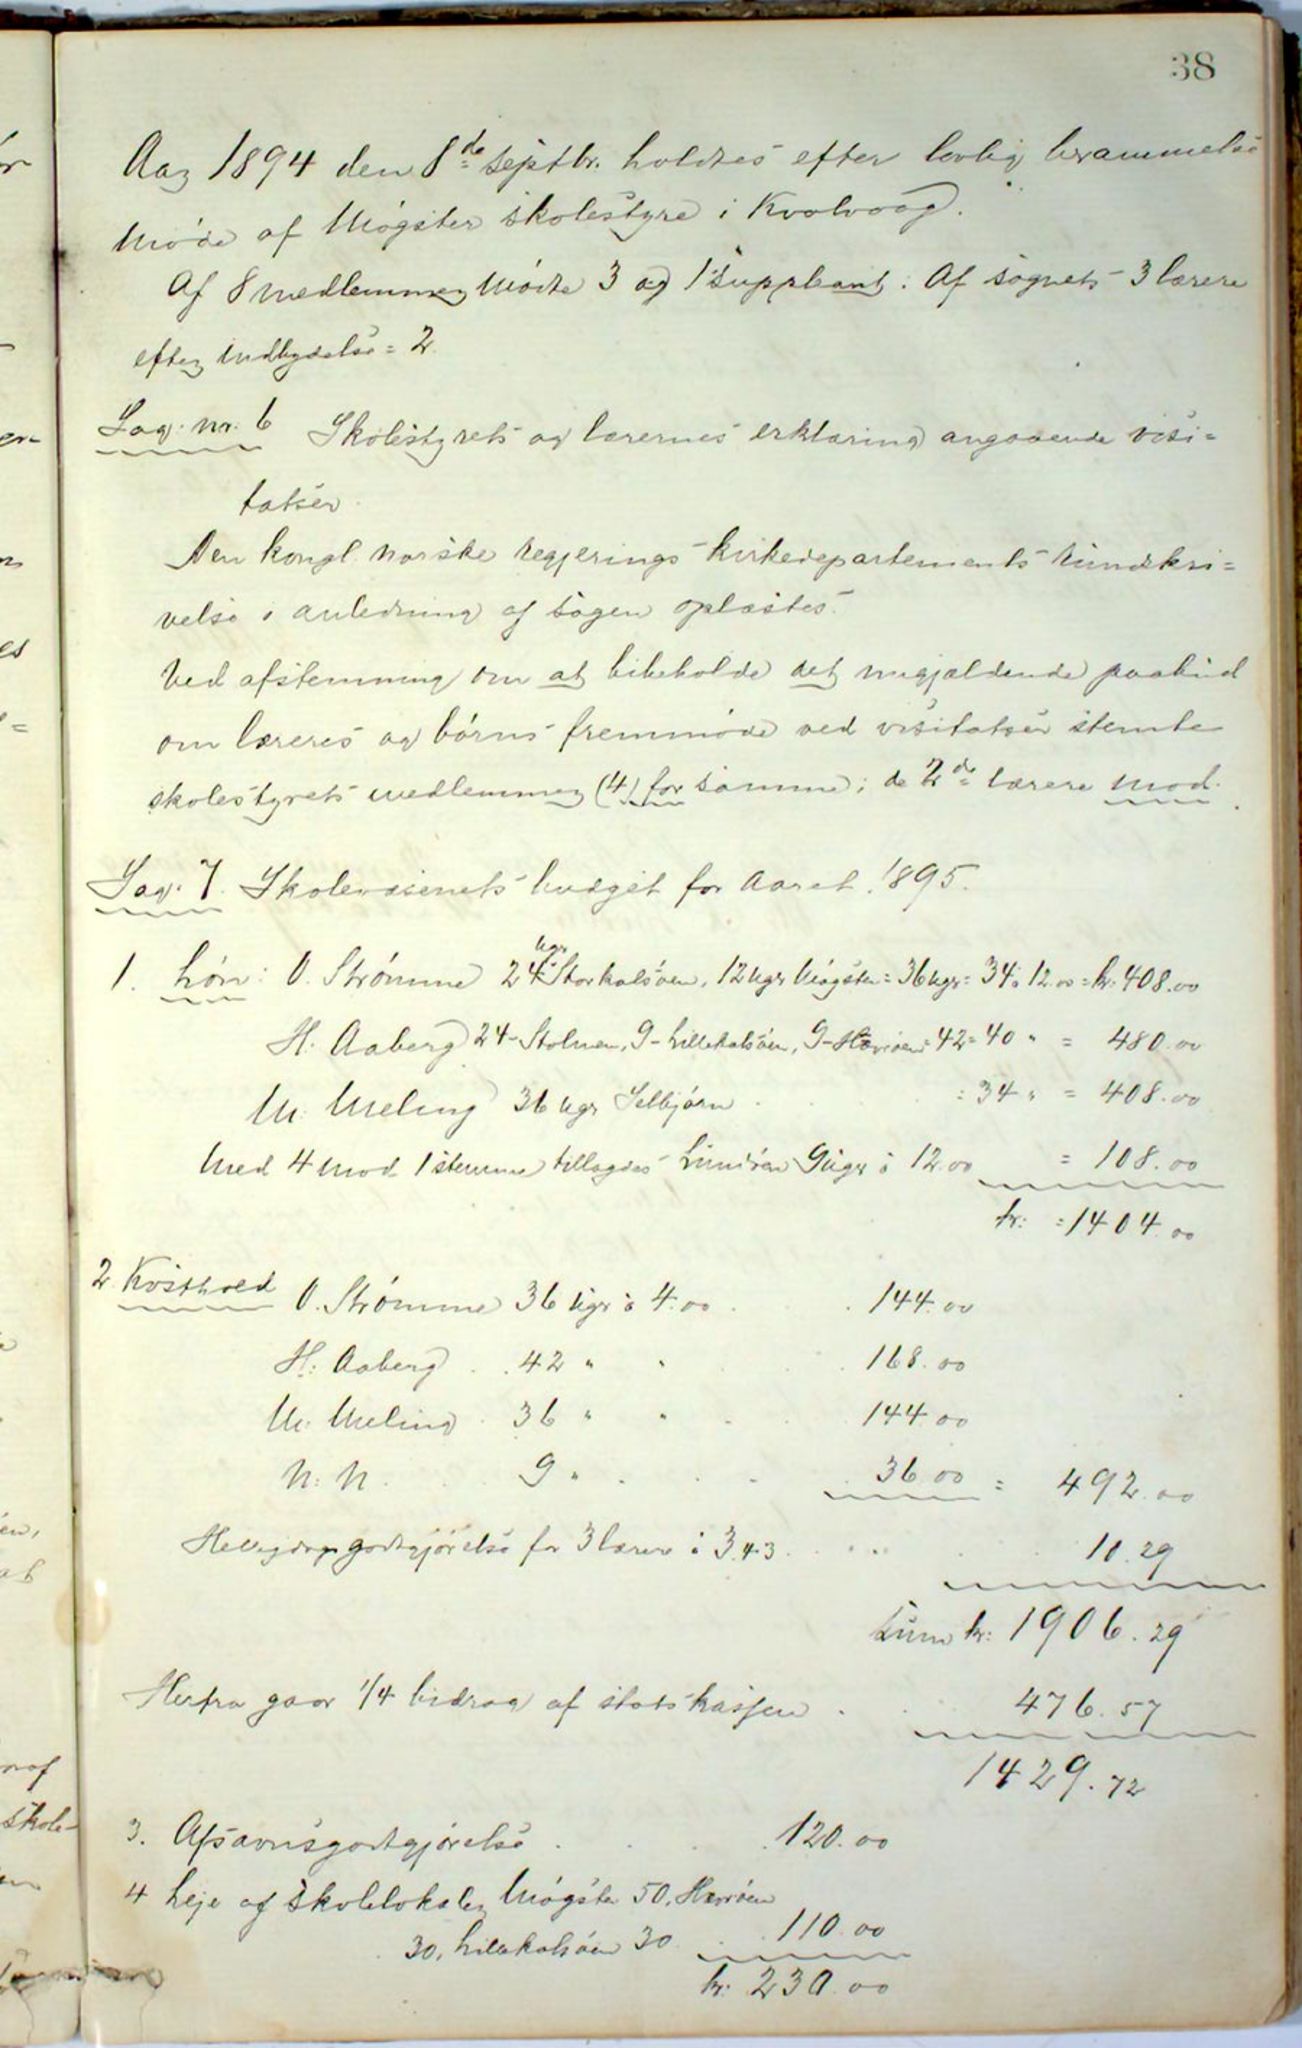 38
Aar 1894 den 8de septbr. holdtes efter lovlig berammelse
møde af Møgster skolestyre i Kvalvaag.
Af 8 medlemmer mødte 3 og 1 suppleant. Af sognets 3 lærere
efter indbydelse = 2.
Sag. nr. 6 Skolestyrets og lærernes erklæring angaaende visi=
tatser.
Den kongl. norske regjerings kirkedepartements rundskri=
velse i anledning af sagen oplæstes.
Ved afstemning om at bibeholde det nugjældende paabud
om læreres og børns fremmøde ved visitatser stemte
skolestyrets medlemmer (4) for samme; de 2de lærere mod.
Sag. 7. Skolevæsenets budget for Aaret 1895.
1. Løn: O. Strømme 24 ugr Storkalsøen, 12 ugr Møgster = 36 ugr = 34 à 12.00 = kr. 408.00
H. Aaberg 24 - Stolmen, 9 - Lillekalsøen, 9 - Hævrøen = 42 = 40 " = 480.00
M. Meling 36 ugr Selbjørn . . = 34 " = 408.00
Med 4 mod 1 stemme tillagdes Lunøen 9 ugr à 12.00 = 108.00
kr: = 1404.00
2. Kosthold O. Strømme 36 ugr à 4.00 . . 144.00
H. Aaberg . . 42 " " . 168.00
M. Meling . 36 " " . 144.00
N. N. . . 9 " . . . 36.00 = 492.00
Helligdagsgodtgjørelse for 3 lærere à 3.43 . . . 10.29
Sum kr: 1906.29
Herfra gaar 1/4 bidrag af statskassen . . 476.57
1429.72
3. Afsavnsgodtgjørelse . . . 120.00
4 Leje af skolelokaler Møgster 50, Hævrøen
30, Lillekalsøen 30 . . 110.00
kr: 230.00